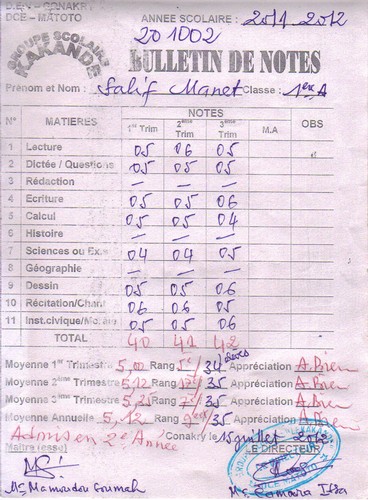 D.E.N - CONAKRY
DCE - MATOTO
ANNEE SCOLAIRE : 2011 - 2012
201002
GROUPE SCOLAIRE
KAKANDE
BULLETIN DE NOTES
Prénom et Nom : Salif Manet Classe : 1ère A
N° MATIERES NOTES OBS
1er Trim 2ème Trim 3ème Trim M.A
1 Lecture 05 06 05
2 Dictée / Questions 05 05 05
3 Rédaction — — —
4 Ecriture 05 05 06
5 Calcul 05 05 04
6 Histoire — — —
7 Sciences ou Ex. 04 04 05
8 Géographie — — —
9 Dessin 05 05 06
10 Récitation/Chant 06 06 05
11 Inst.civique/Morale 05 05 06
TOTAL 40 41 42
Moyenne 1er Trimestre 5,00 Rang 5e/34 élèves Appréciation A.Bien
Moyenne 2ème Trimestre 5,12 Rang /35 Appréciation A.Bien
Moyenne 3ème Trimestre 5,25 Rang /35 Appréciation A.Bien
Moyenne Annuelle 5,12 Rang /35 Appréciation A.Bien
Admis en 2e Année Conakry le 15 juillet 2012
Maître (esse) LE DIRECTEUR
Mr Mamoudou Soumah Mr Camara